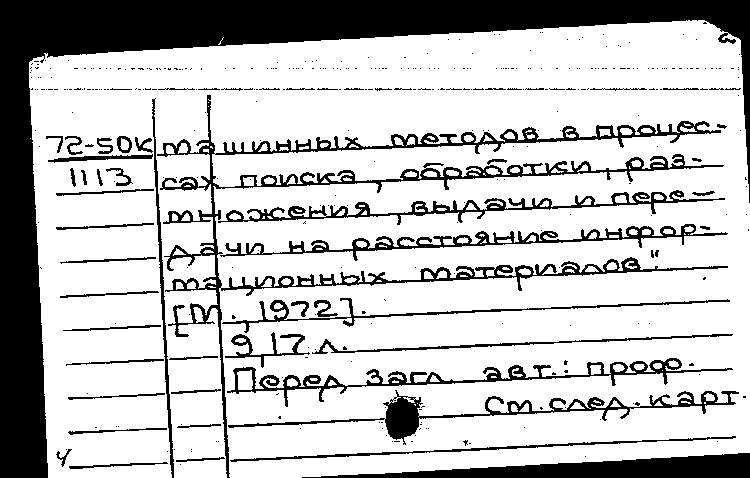 72-50К машинных методов в процес-
1113 сах поиска, обработки, раз-
множения, выдачи и пере-
дачи на расстояние инфор-
мационных материалов".
[М., 1972].
9,17 л.
Перед загл. авт.: проф.
См. след. карт.
4